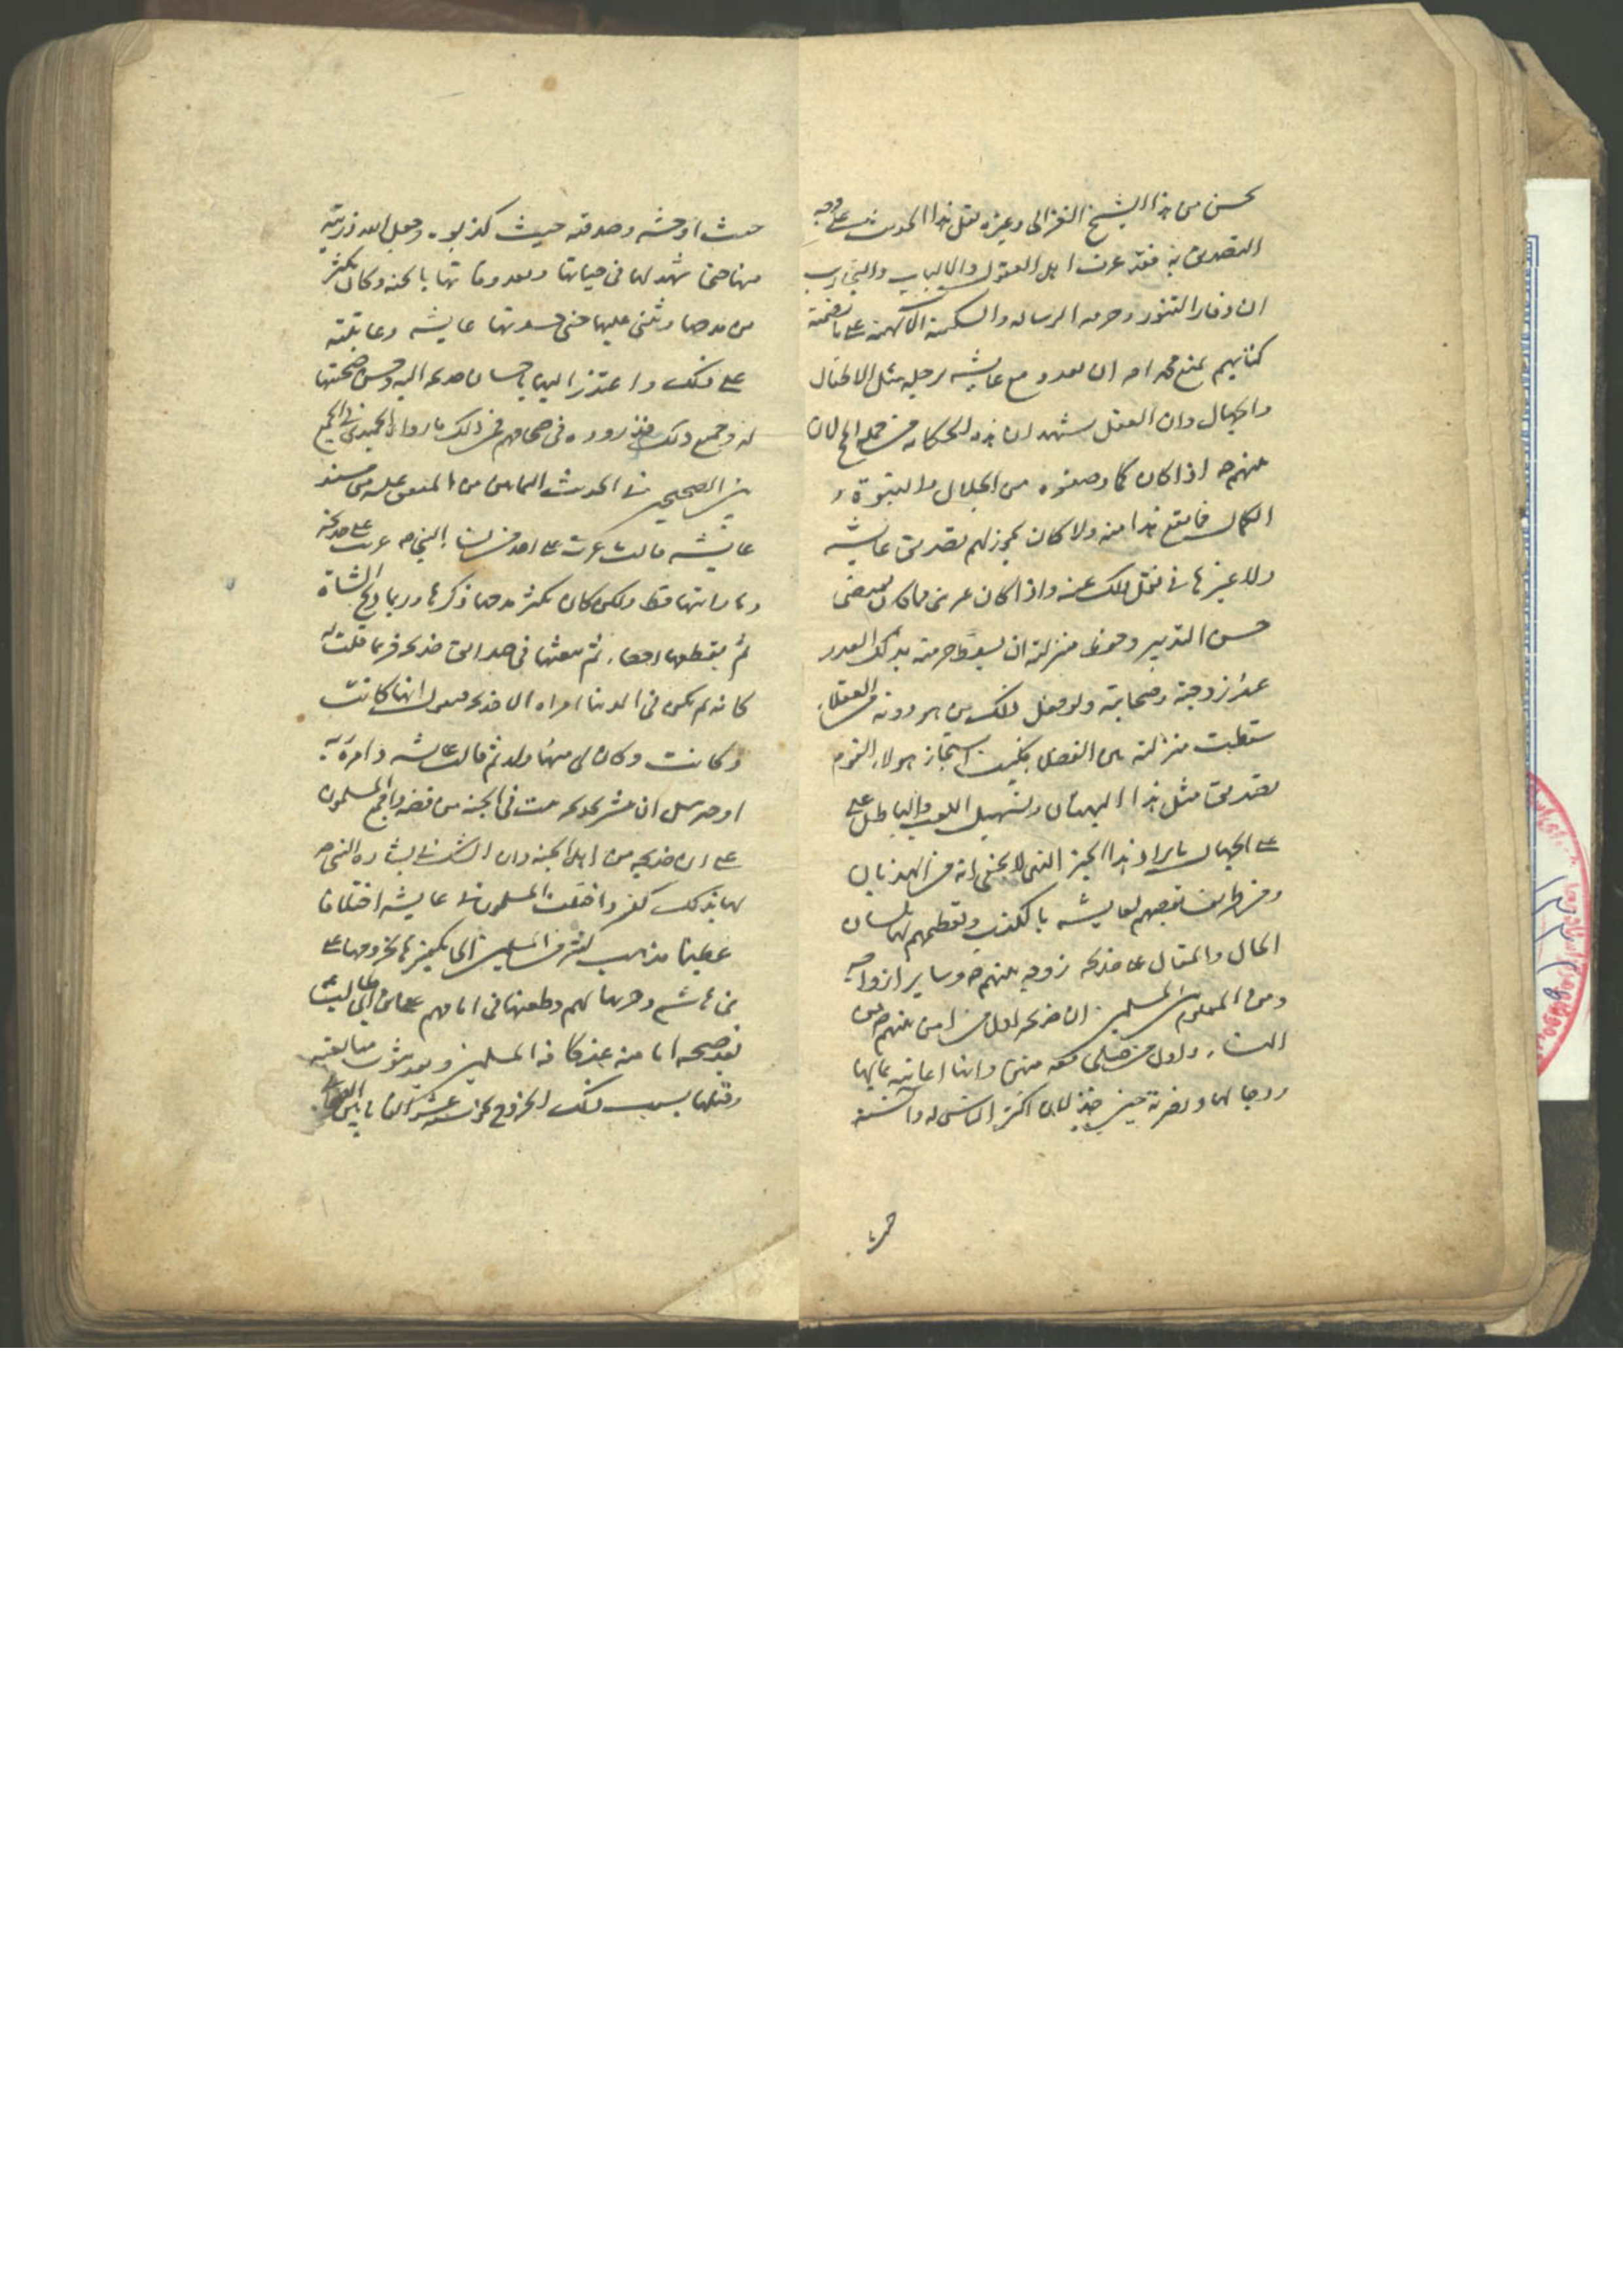 يحسن من هذا الشيخ الغزالى وغيره نقل هذا الحديث على وجه
التصديق به فقد عرف اهل العقول والالباب والتجارب
ان وقار النبوة وحرمه الرساله والسكينه الآلهيه على ما تضمنه
كتابهم يمنع محمدا ص ان يعدو مع عايشه برجليه مثل الاطفال
والجهال وان العقل يشهد ان هذه الحكايه من جمله المحالات
عنهم ص اذا كان كما وصفوه من الجلال والنبوة و
الكمال فما يقع هذا منه ولا كان يجوز لهم تصديق عايشه
ولا غيرها فى نقل ذلك عنه واذا كان عرض ما كان يقتضى
حسن التدبير وحفظ منزلته ان يسقط حرمته بذلك العدو
عند زوجته وصحابته ولو فعل ذلك من هو دونه من العقلاء
سقطت منزلته بين الفضلا فكيف استجاز هولاء القوم
تصديق مثل هذا البهتان وتسهيل اللعب والباطل على
على الجهال بايراد هذا الخبر الذى لا يخفى انه من الهذيان
ومن طرايف تعصبهم لعايشه بالكذب وتعظيمهم لها بلسان
الحال والمقال على خديجه زوجه نبيهم ص وساير ازواجه
ومن المعلوم بين المسلمين ان خديجه اول من امن بنبيهم ص من
النساء واول من صلى معه منهن وانها اعانته بمالها
ورجالها ونصرته حين خذلان اكثر الناس له وآنسته
حيث اوحشوه وصدقته حيث كذبوه وجعل الله ذريته
منها حتى شهد لها فى حياتها وبعد وفاتها بالجنه وكان يكثر
من مدحها ويثنى عليها حتى حسدتها عايشه وعاتبته
على ذلك واعتذر اليها باحسان خديجه اليه وحسن صحبتها
له وجميع ذلك قد رووه فى صحاحهم فمن ذلك ما رواه الحميدى فى الجمع
بين الصحيحين فى الحديث الثمانين من المتفق عليه من مسند
عايشه قالت ما غرت على احد من نساء النبى ص ما غرت على خديجه
وما رايتها قط ولكن كان يكثر من ذكرها وربما ذبح الشاة
ثم يقطعها اعضاء ثم يبعثها فى صدايق خديجه فربما قلت له
كانه لم يكن فى الدنيا امراه الا خديجه فيقول انها كانت
وكانت وكان لى منها ولد ثم قالت عايشه وامره ربه
او جبرئيل ان يبشر خديجه ببيت فى الجنه من قصب واجمع المسلمون
على ان خديجه من اهل الجنه وان الشك فى بشاره النبى ص
لها بذلك كفر واختلف المسلمون فى عايشه اختلافا
عظيما فذهب كثير من المسلمين الى تكفيرها بخروجها على
بنى هاشم وحربها لهم وطعنها فى امامهم على بن ابى طالب
بعد صحه امامته عند كافه المسلمين وبعد ثبوت مبايعته
وقتلها بسبب ذلك الخروج نحو سته عشر الفا